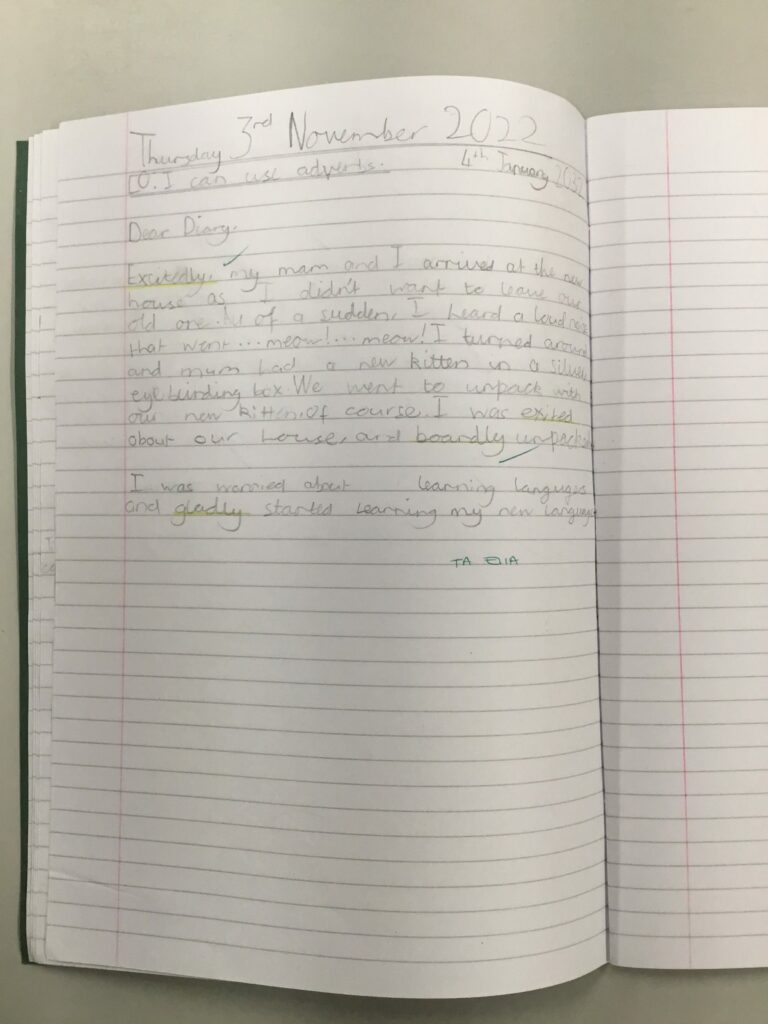 Thursday 3rd November 2022
LO: I can use adverbs.
4th January
Dear Diary,
Excitedly, my mam and I arrived at the new
house as I didn't want to leave our
old one. All of a sudden, I heard a loud noise
that went...meow!...meow! I turned around
and mum had a new kitten in a silver
eye blinding box. We went to unpack with
our new kitten. Of course, I was exited
about our house, and boardly unpack
I was worried about learning languges
and gladly started learning my new language
TA